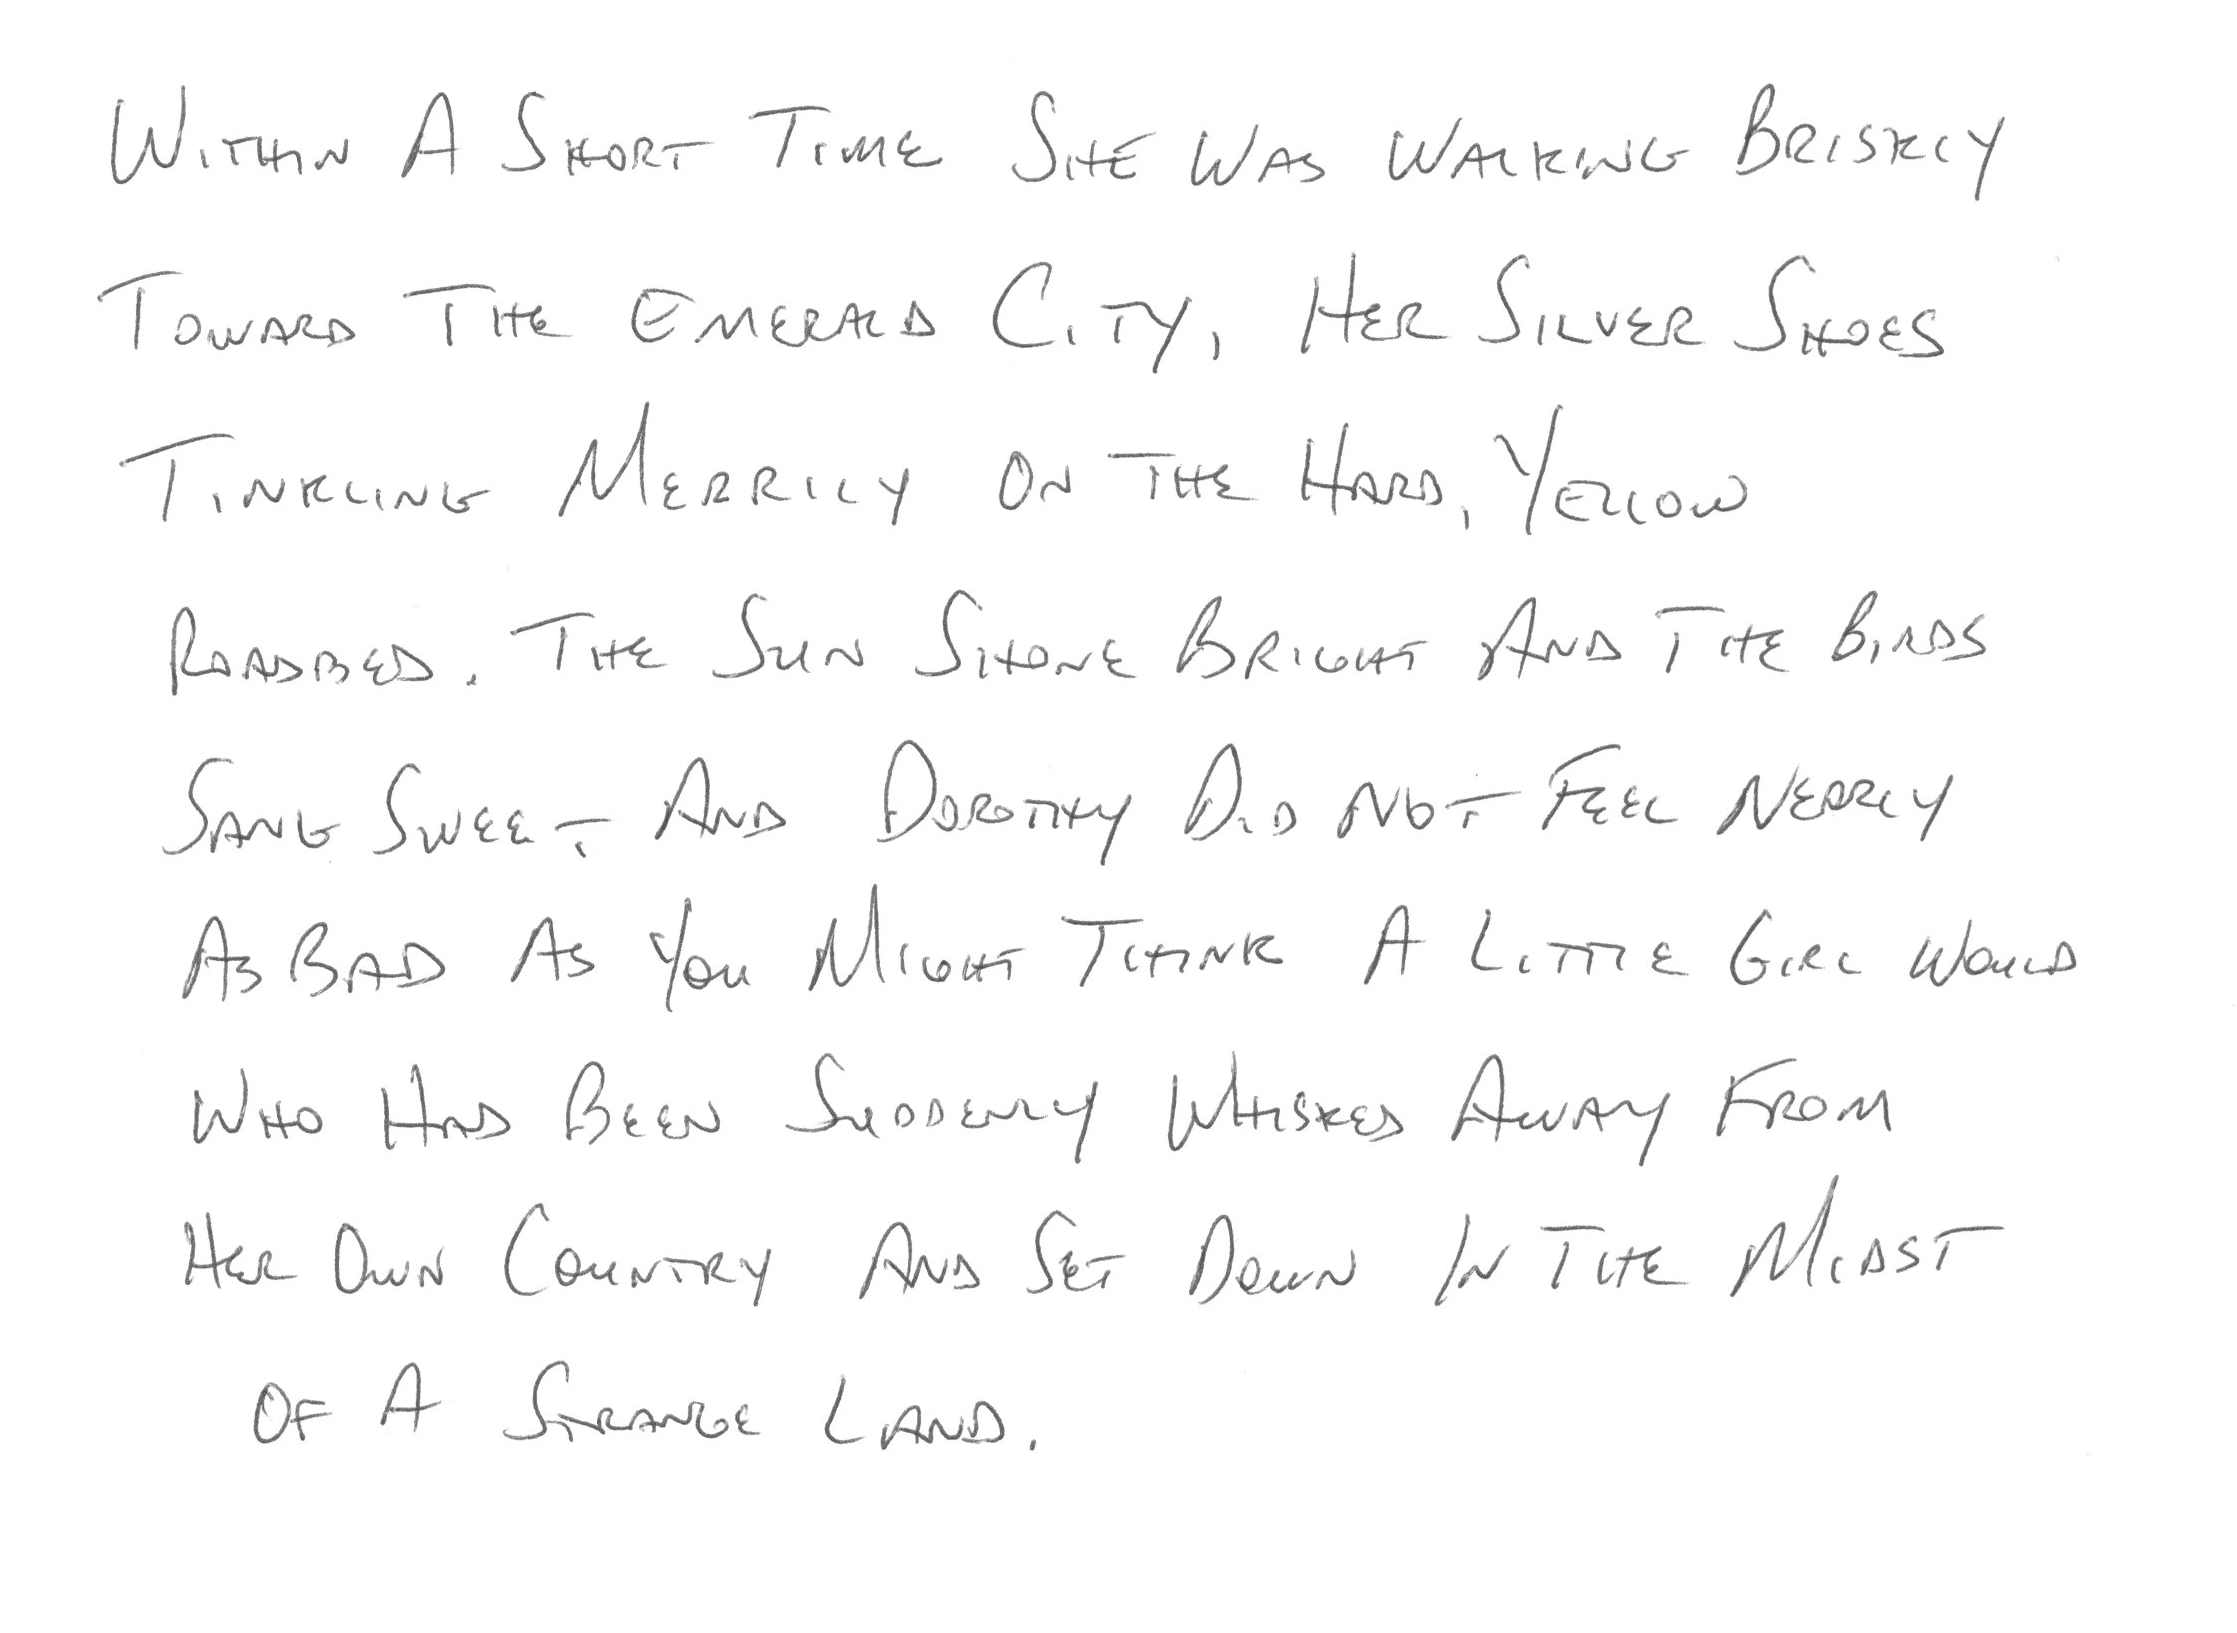 Within A Short Time She Was Walking Briskly
Toward The Emerald City, Her Silver Shoes
Tinkling Merrily On The Hard, Yellow
Roadbed. The Sun Shone Bright And The Birds
Sang Sweet And Dorothy Did Not Feel Nearly
As Bad As You Might Think A Little Girl Would
Who Had Been Suddenly Whisked Away From
Her Own Country And Set Down In The Midst
Of A Strange Land.